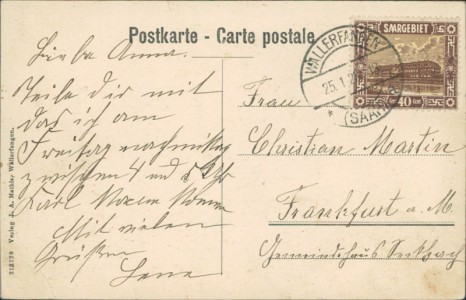 Postkarte - Carte postale
SAARGEBIET
40
WALLERFANGEN
25.1.2
(SAAR)
Liebe Anna.
Teile dir mit
das ich am
Freitag nachmittag
zwischen 4 und 5 Uhr
Mit vielen
Grüßen
Lena
Frau
Christian Martin
Frankfurt a. M.
Gemeindehaus Seckbach
Verlag J. A. Mathis, Wallerfangen.